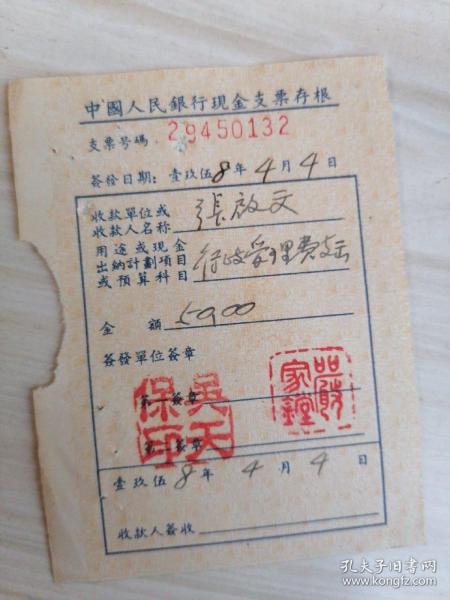 中國人民銀行現金支票存根
支票号碼 29450132
簽發日期：壹玖伍8年4月4日
收款單位或
收款人名称 張啟文
用途或現金
出納計劃項目
或預算科目 行政管理費支出
金額 50.00
簽發單位簽章
第一簽章
第二簽章
吳天
保印
壹玖伍8年4月4日
收款人簽收
孔夫子旧书网
www.kongfz.com